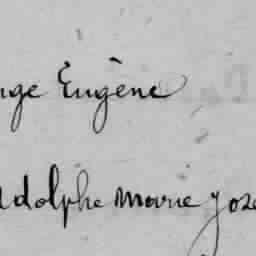 nge Eugène
Adolphe Marie Jose